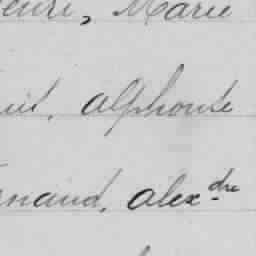 enri, Marie
uis, alphonse
rnand, alex.dre